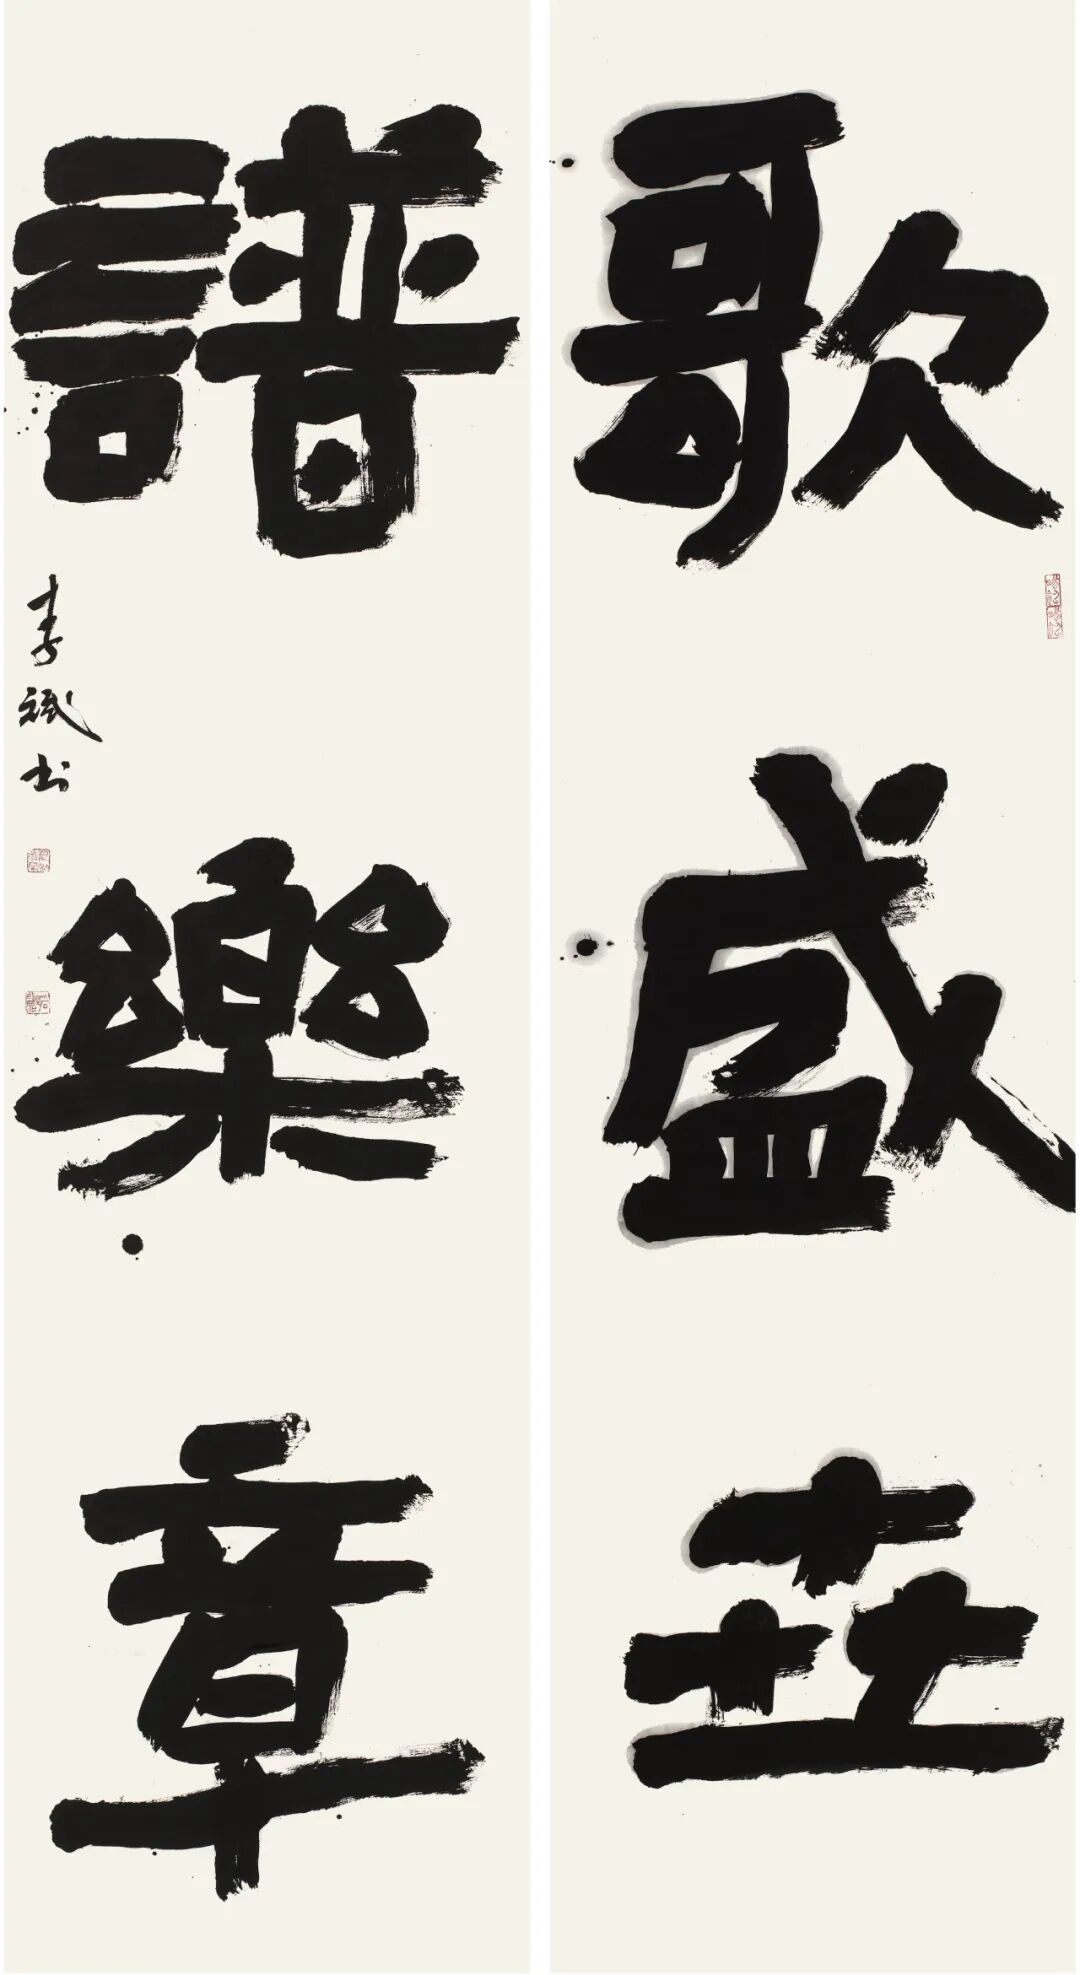 歌盛世
譜樂章
李斌书